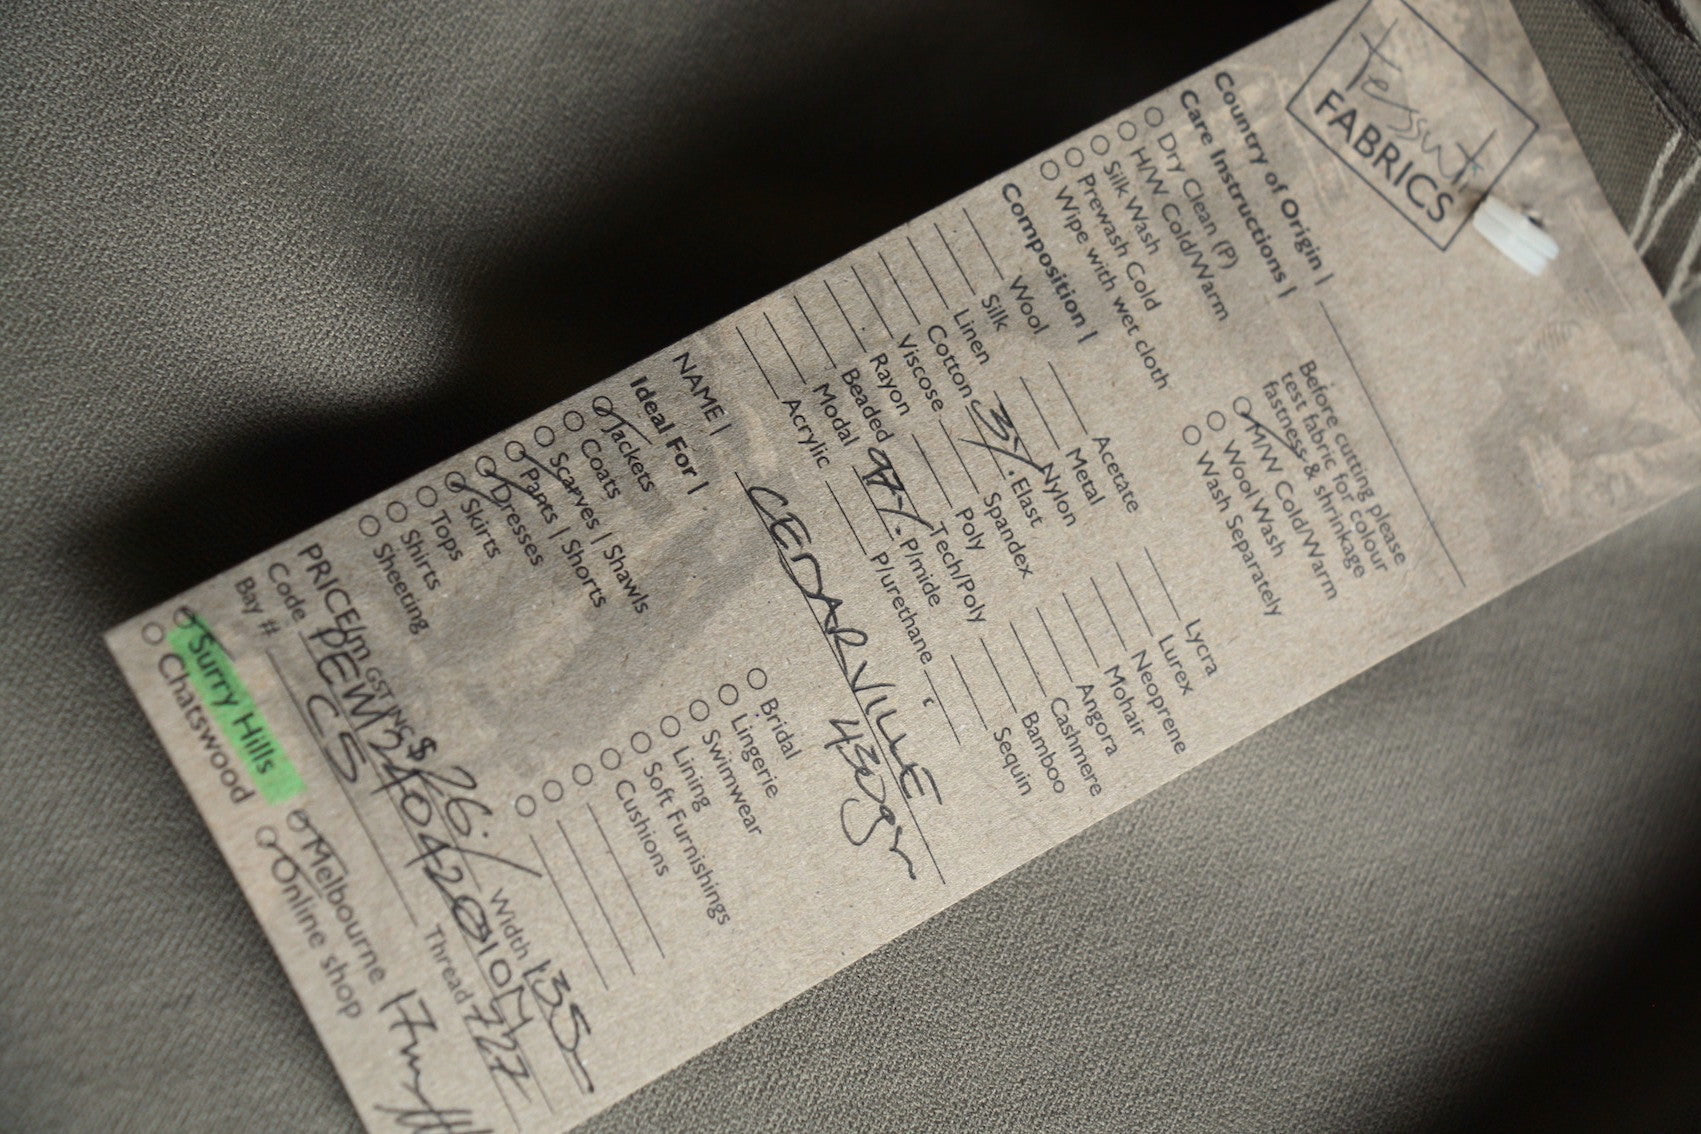 tessuti
FABRICS
Country of Origin |
Care Instructions |
Dry Clean (P)
H/W Cold/Warm
Silk Wash
Prewash Cold
Wipe with wet cloth
Before cutting please
test fabric for colour
fastness & shrinkage
M/W Cold/Warm
Wool Wash
Wash Separately
Composition |
Wool Acetate Lycra
Silk Metal Lurex
Linen Nylon Neoprene
Cotton 3%. Elast Mohair
Viscose Spandex Angora
Rayon Poly Cashmere
Beaded Tech/Poly Bamboo
Modal 97%. P/mide Sequin
Acrylic P/urethane
NAME | CEDARVILLE
430gm
Ideal For |
Jackets Bridal
Coats Lingerie
Scarves | Shawls Swimwear
Pants | Shorts Lining
Dresses Soft Furnishings
Skirts Cushions
Tops
Shirts
Sheeting
PRICE/m GST INC $ 26./ Width 1.35
Code
Bay # C5 Thread 727
Surry Hills Melbourne
Chatswood Online shop